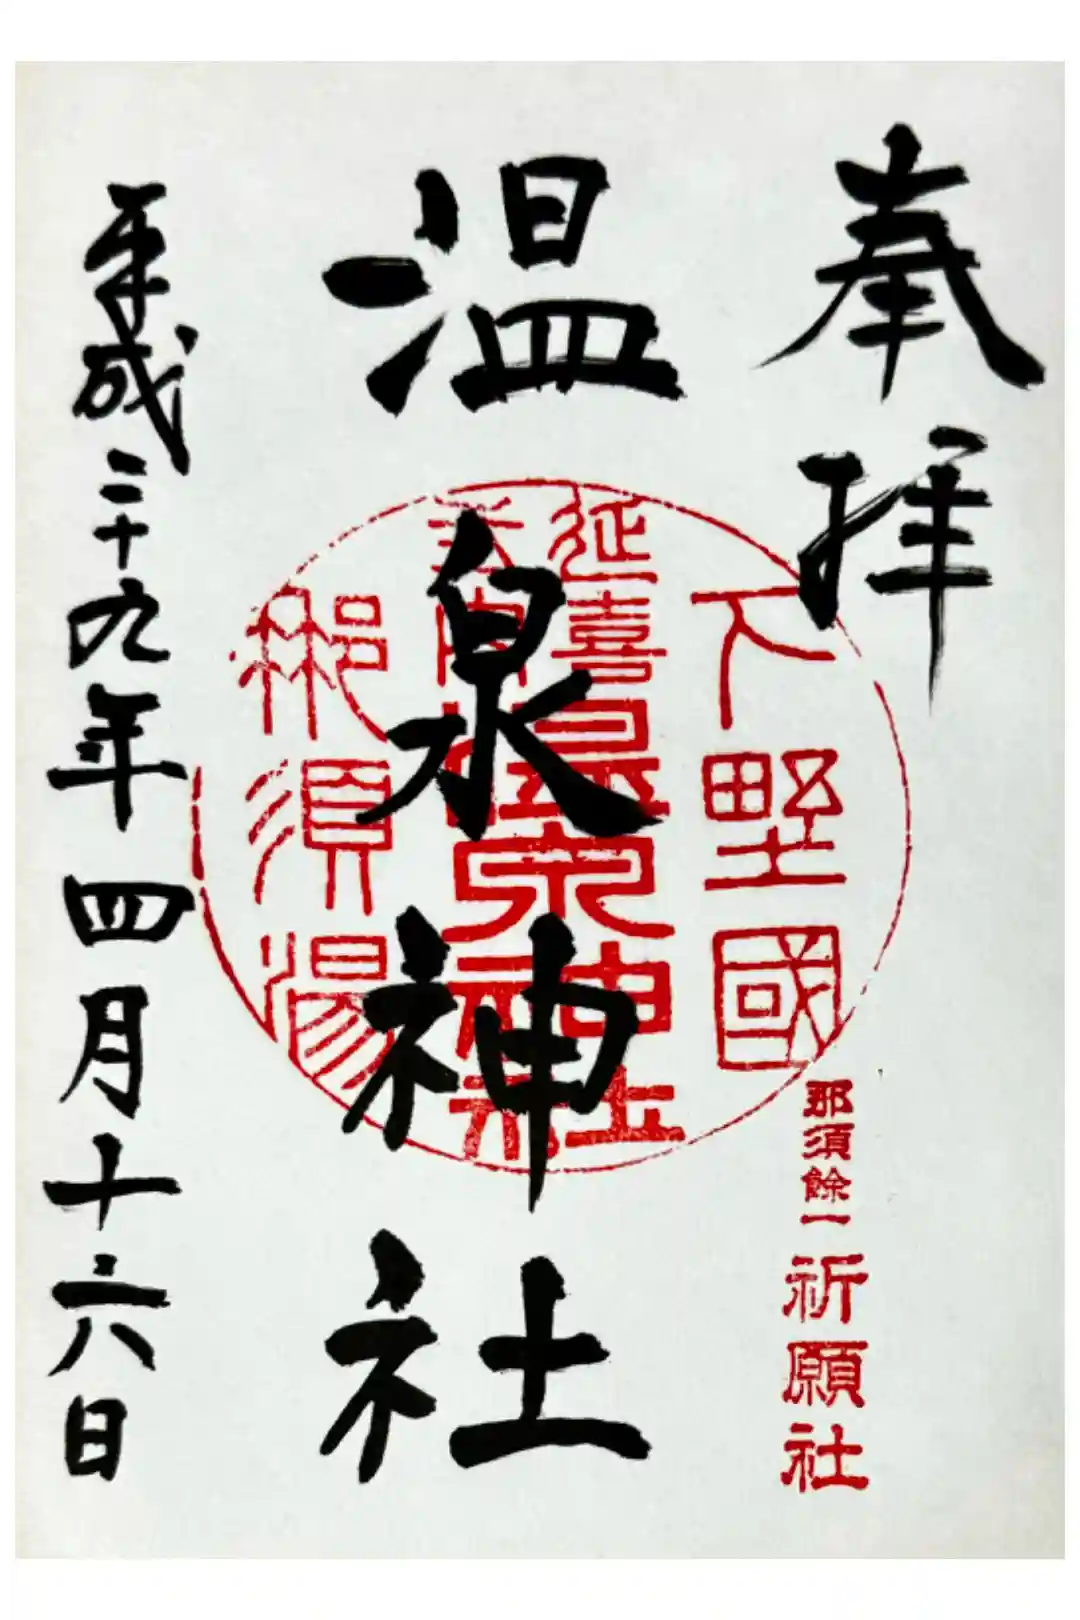 奉拝
那須餘一 祈願社
下野國
延喜
式内
温泉神社
那須湯
温泉神社
平成二十九年四月十六日